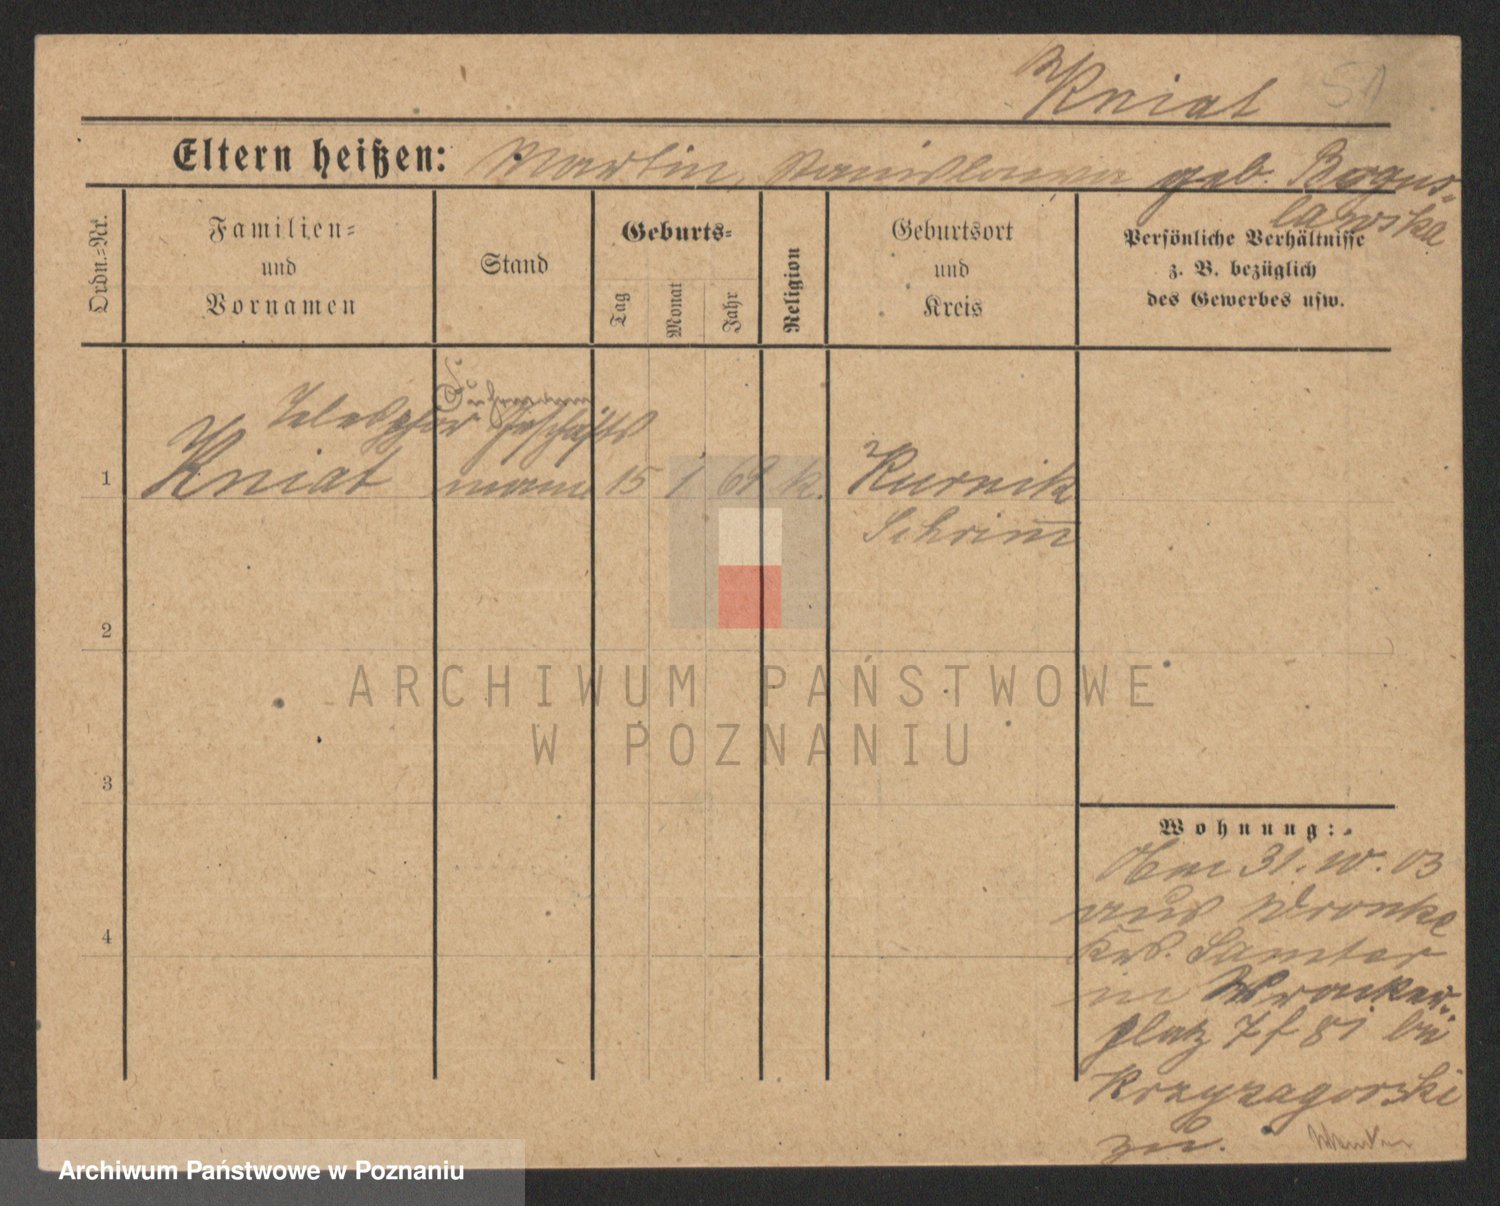 Kniat 51
Eltern heißen: Martin, Stanislawa geb. Bogus-
lawska
Ordn.-Nr.
Familien-
und
Vornamen
Stand
Geburts-
Tag
Monat
Jahr
Religion
Geburtsort
und
Kreis
Persönliche Verhältnisse
z. B. bezüglich
des Gewerbes usw.
Telesphor Geschäfts
1 Kniat mann 15 1 69 k. Kurnik
Schrimm
2
3
4
Wohnung:
Am 31. 10. 03
aus Wronke
Krs. Samter
in Wronker-
platz 7 f 81 bei
Krzyzagorski
zu.
ARCHIWUM PAŃSTWOWE
W POZNANIU
Archiwum Państwowe w Poznaniu